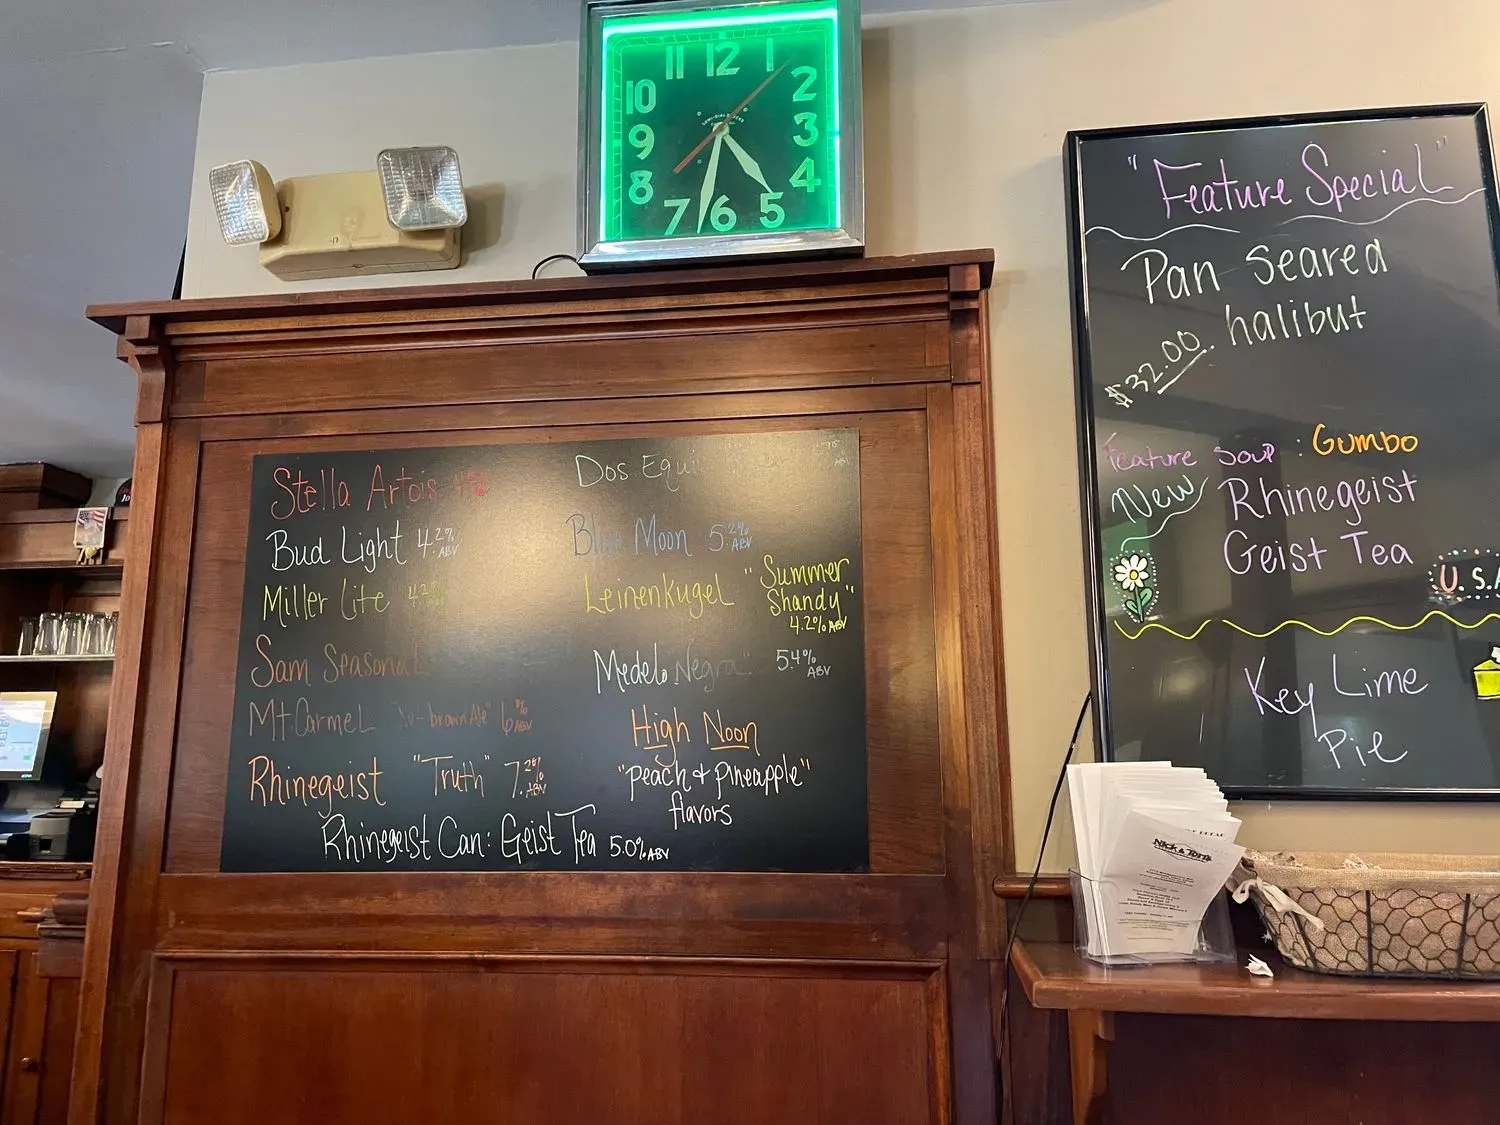 11 12 1
10 2
9 3
8 4
7 6 5
Stella Artois
ABV
Bud Light 4.2%
ABV
Miller Lite 4.2%
Sam Seasonal
Mt. Carmel brown Ale" 6%
ABV
Rhinegeist "Truth" 7.2%
ABV
Rhinegeist Can: Geist Tea 5.0% ABV
Dos Equi
Blue Moon 5.2%
ABV
Leinenkugel "Summer
Shandy"
4.2% ABV
Modelo "Negra" 5.4%
ABV
High Noon
"peach & pineapple"
flavors
"Feature Special"
Pan Seared
$32.00. halibut
Feature Soup: Gumbo
New Rhinegeist
Geist Tea
U.S.A
Key Lime
Pie
Nick & Tom's